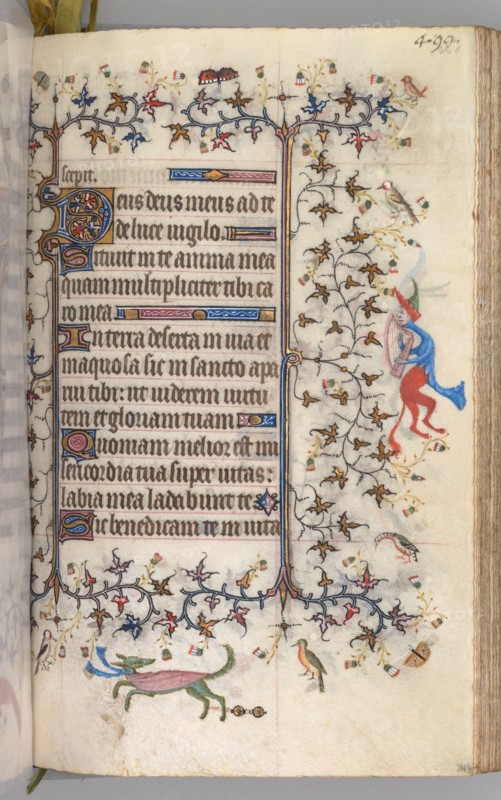 499
scepit.
Deus deus meus ad te
de luce uigilo.
Sitiuit in te anima mea
quam multipliciter tibi ca
ro mea
In terra deserta in uia et
inaquosa sic in sancto apa
rui tibi: ut uiderem uirtu
tem et gloriam tuam
Quoniam melior est mi
sericordia tua super uitas:
labia mea ladabunt te
Sic benedicam te in uita